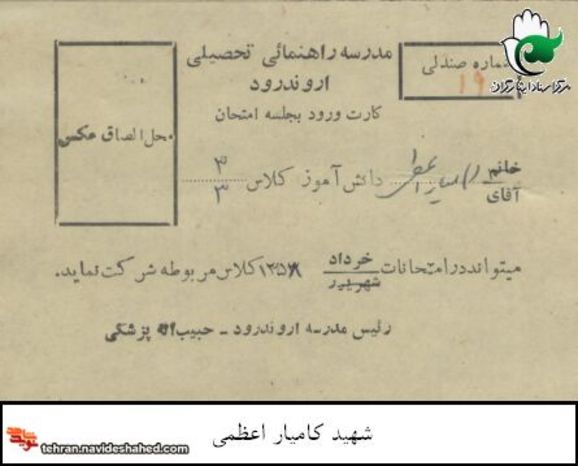 مرکز اسناد ایثارگران
شماره صندلی
۱۹
مدرسه راهنمائی تحصیلی
اروندرود
کارت ورود بجلسه امتحان
محل الصاق عکس
خانم
آقای
کامیار اعظمی دانش آموز کلاس ۳/۳
میتواند در امتحانات خرداد
شهریور
۱۳۵۸ کلاس مربوطه شرکت نماید.
رئیس مدرسه اروندرود - حبیب اله پزشکی
شهید کامیار اعظمی
نوید شاهد
tehran.navideshahed.com